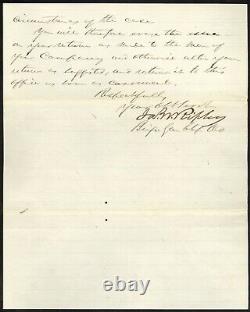 circumstances of the case
You will therefore erase the issue
as expenditures as made to the men of
your Company and otherwise alter your
return as suggested, and return it to this
office as soon as convenient.
Respectfully
Your Obt Servt
Jas W Ripley
Brig. Gen.